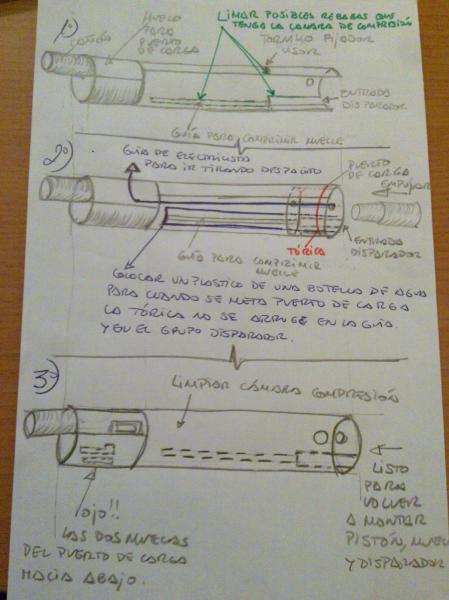 1º
CAÑÓN
HUECO
PARA
PUERTO
DE CARGA
LIMAR POSIBLES REBABAS QUE
TENGA LA CÁMARA DE COMPRESIÓN
TORNILLO FIJADOR
VISOR
ENTRADA
DISPARADOR
GUÍA PARA COMPRIMIR MUELLE
2º
GUIA DE ELECTRICISTA
PARA IR TIRANDO DESPACITO
PUERTO
DE CARGA
EMPUJAR
ENTRADA
DISPARADOR
TÓRICA
GUÍA PARA COMPRIMIR
MUELLE
COLOCAR UN PLASTICO DE UNA BOTELLA DE AGUA
PARA CUANDO SE META PUERTO DE CARGA
LA TÓRICA NO SE ARRUGE EN LA GUÍA.
Y EN EL GRUPO DISPARADOR.
3º
LIMPIAR CÁMARA COMPRESIÓN
OJO!!
LAS DOS MUECAS
DEL PUERTO DE CARGA
HACIA ABAJO.
LISTO
PARA
VOLVER
A MONTAR
PISTÓN, MUELLE
Y DISPARADOR